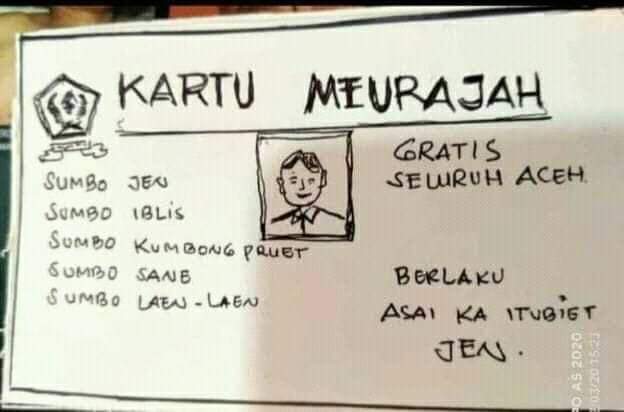 KARTU MEURAJAH
SUMBO JEN
SUMBO IBLIS
SUMBO KUMBONG PRUET
SUMBO SANE
SUMBO LAEN-LAEN
GRATIS
SELURUH ACEH.
BERLAKU
ASAI KA ITUBIET
JEN.
PO A5 2020
/03/20 15:23